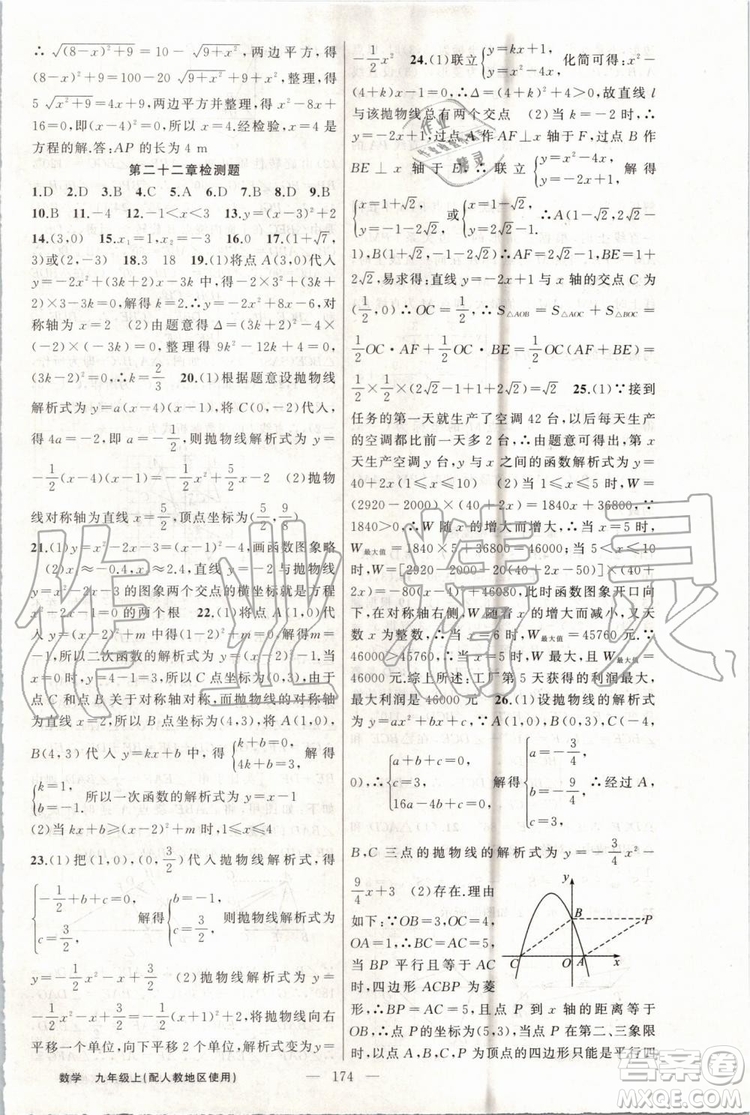 ∴ √((8-x)²+9) + √(x²+9),两边平方,得
(8-x)²+9=100-20 √(x²+9)+9+x²,整理,得
5 √(x²+9)=9+4x,两边平方并整理,得 x²-8x+
16=0,即(x-4)²=0,所以 x=4.经检验,x=4 是
方程的解.答:AP 的长为 4 m
第二十二章检测题
1.D 2.D 3.B 4.C 5.A 6.D 7.B 8.D 9.B
10.B 11.-4 12.-1<x<3 13.y=(x-3)²+2
14.(3,0) 15.x₁=-1,x₂=3 16.0 17.(1+√7,
3)或(2,-3) 18.3 19.(1)将点 A(1,0)代入
y=-x²+(3k+2)x-3k,得-1+(3k+2)-3k=0,解得 k=
称轴为 x=2 (2)由题意得 Δ=(3k+2)²-4×
(-2)×(-3k)=9k²-12k+4=(3k-2)²=0,∴
(3k-2)²=0,∴k=2/3 20.(1)根据题意设抛物线
解析式为 y=a(x-4)(x-1),将 C(0,-2)代入,
得 4a=-2,即 a=-1/2,则抛物线解析式为 y=
-1/2(x-4)(x-1)=-1/2x²+5/2x-2 (2)抛物
线对称轴为直线 x=5/2,顶点坐标为(5/2,9/8)
21.(1)列表得,y=x²-2x-1,画函数图象略
(2)x≈-0.4,x≈2.4 (3)∵直线 y=-1 与抛物
线的图象两个交点的横坐标就是方程
x²-2x=0 的两个根 22.(1)将点 A(1,0)代
入 y=(x-2)²+m,得(1-2)²+m=0,解得 m=-1,
所以二次函数的解析式为 y=(x-2)²-1.
当 x=0 时,y=4-1=3,所以点 C 的坐标为(0,3),由于
点 C 和点 B 关于对称轴对称,而抛物线的对称轴为
直线 x=2,所以点 B 坐标为(4,3),将 A(1,0),
B(4,3)代入 y=kx+b,得 {k+b=0, 4k+b=3, 解得
{k=1, b=-1. 所以一次函数的解析式为
y=x-1 (2)当kx+b≥(x-2)²+m 时,1≤x≤4
23.(1)把(1,0),(0,3/2)代入抛物线解析式,得
{-1/2+b+c=0, c=3/2, 解得{b=-1, c=3/2, 则抛物线解析式为
y=-1/2x²-x+3/2 (2)抛物线解析式为 y=
-1/2x²-x+3/2=-1/2(x+1)²+2,将抛物线向右
平移一个单位,向下平移 2 个单位,解析式变为 y=
-1/2x² 24.(1)联立{y=kx+1, y=x²-4x, 化简可得:x²-
(4+k)x-1=0,∴Δ=(4+k)²+4>0,故直线 l
与该抛物线总有两个交点 (2)当 k=-2 时,
y=-2x+1,过点 A 作 AF⊥x 轴于 F,过点 B 作
BE⊥x 轴于 E,∴联立{y=x²-4x, y=-2x+1, 解得
{x=1+√2, y=-1-2√2, 或{x=1-√2, y=2√2-1, ∴A(1-√2,2√2-
1),B(1+√2,-1-2√2),∴AF=2√2-1,BE=1+
2√2,易求得:直线 y=-2x+1 与 x 轴的交点 C 为
(1/2,0),∴OC=1/2,∴S△AOB=S△AOC+S△BOC=
1/2OC·AF+1/2OC·BE=1/2OC(AF+BE)=
1/2×1/2×(2√2-1+1+2√2)=√2 25.(1)∵接到
任务的第一天就生产了空调 42 台,以后每天生产
的空调都比前一天多 2 台,由题意可得出,第 x
天生产空调 y 台,y 与 x 之间的函数解析式为 y=
40+2x(1≤x≤10) (2)当 1≤x≤5 时,W=
(2920-2000)×(40+2x)=1840x+36800,∵
1840>0,∴W 随 x 的增大而增大,∴当 x=5 时,
W最大值=1840×5+36800=46000;当 5<x≤10
时,W=[2920-2000-20(40+2x-50)]×(40+
2x)=-80(x-4)²+46080,此时函数图象开口向
下,在对称轴右侧,W 随着 x 的增大而减小,又天
数 x 为整数,∴当 x=6 时,W最大值=45760 元.∵
46000>45760,∴当 x=5 时,W 最大,且W最大值=
46000 元.综上所述:工厂第 5 天获得的利润最大,
最大利润是 46000 元 26.(1)设抛物线的解析式
为 y=ax²+bx+c,∵A(1,0),B(0,3),C(-4,
0),∴{a+b+c=0, c=3, 16a-4b+c=0, 解得{a=-3/4, b=-9/4, c=3, ∴经过 A,
B,C 三点的抛物线的解析式为 y=-3/4x²-
9/4x+3 (2)存在.理由
如下:∵OB=3,OC=4,
OA=1,∴BC=AC=5,
当 BP 平行且等于 AC
时,四边形 ACBP 为菱
形,∴BP=AC=5,且点 P 到 x 轴的距离等于
OB,∴点 P 的坐标为(5,3),当点 P 在第二、三象限
时,以点 A,B,C,P 为顶点的四边形只能是平行四
y
B
P
C
O
A
x
数学 九年级上(配人教地区使用)
— 174 —
作业精灵
答案圈